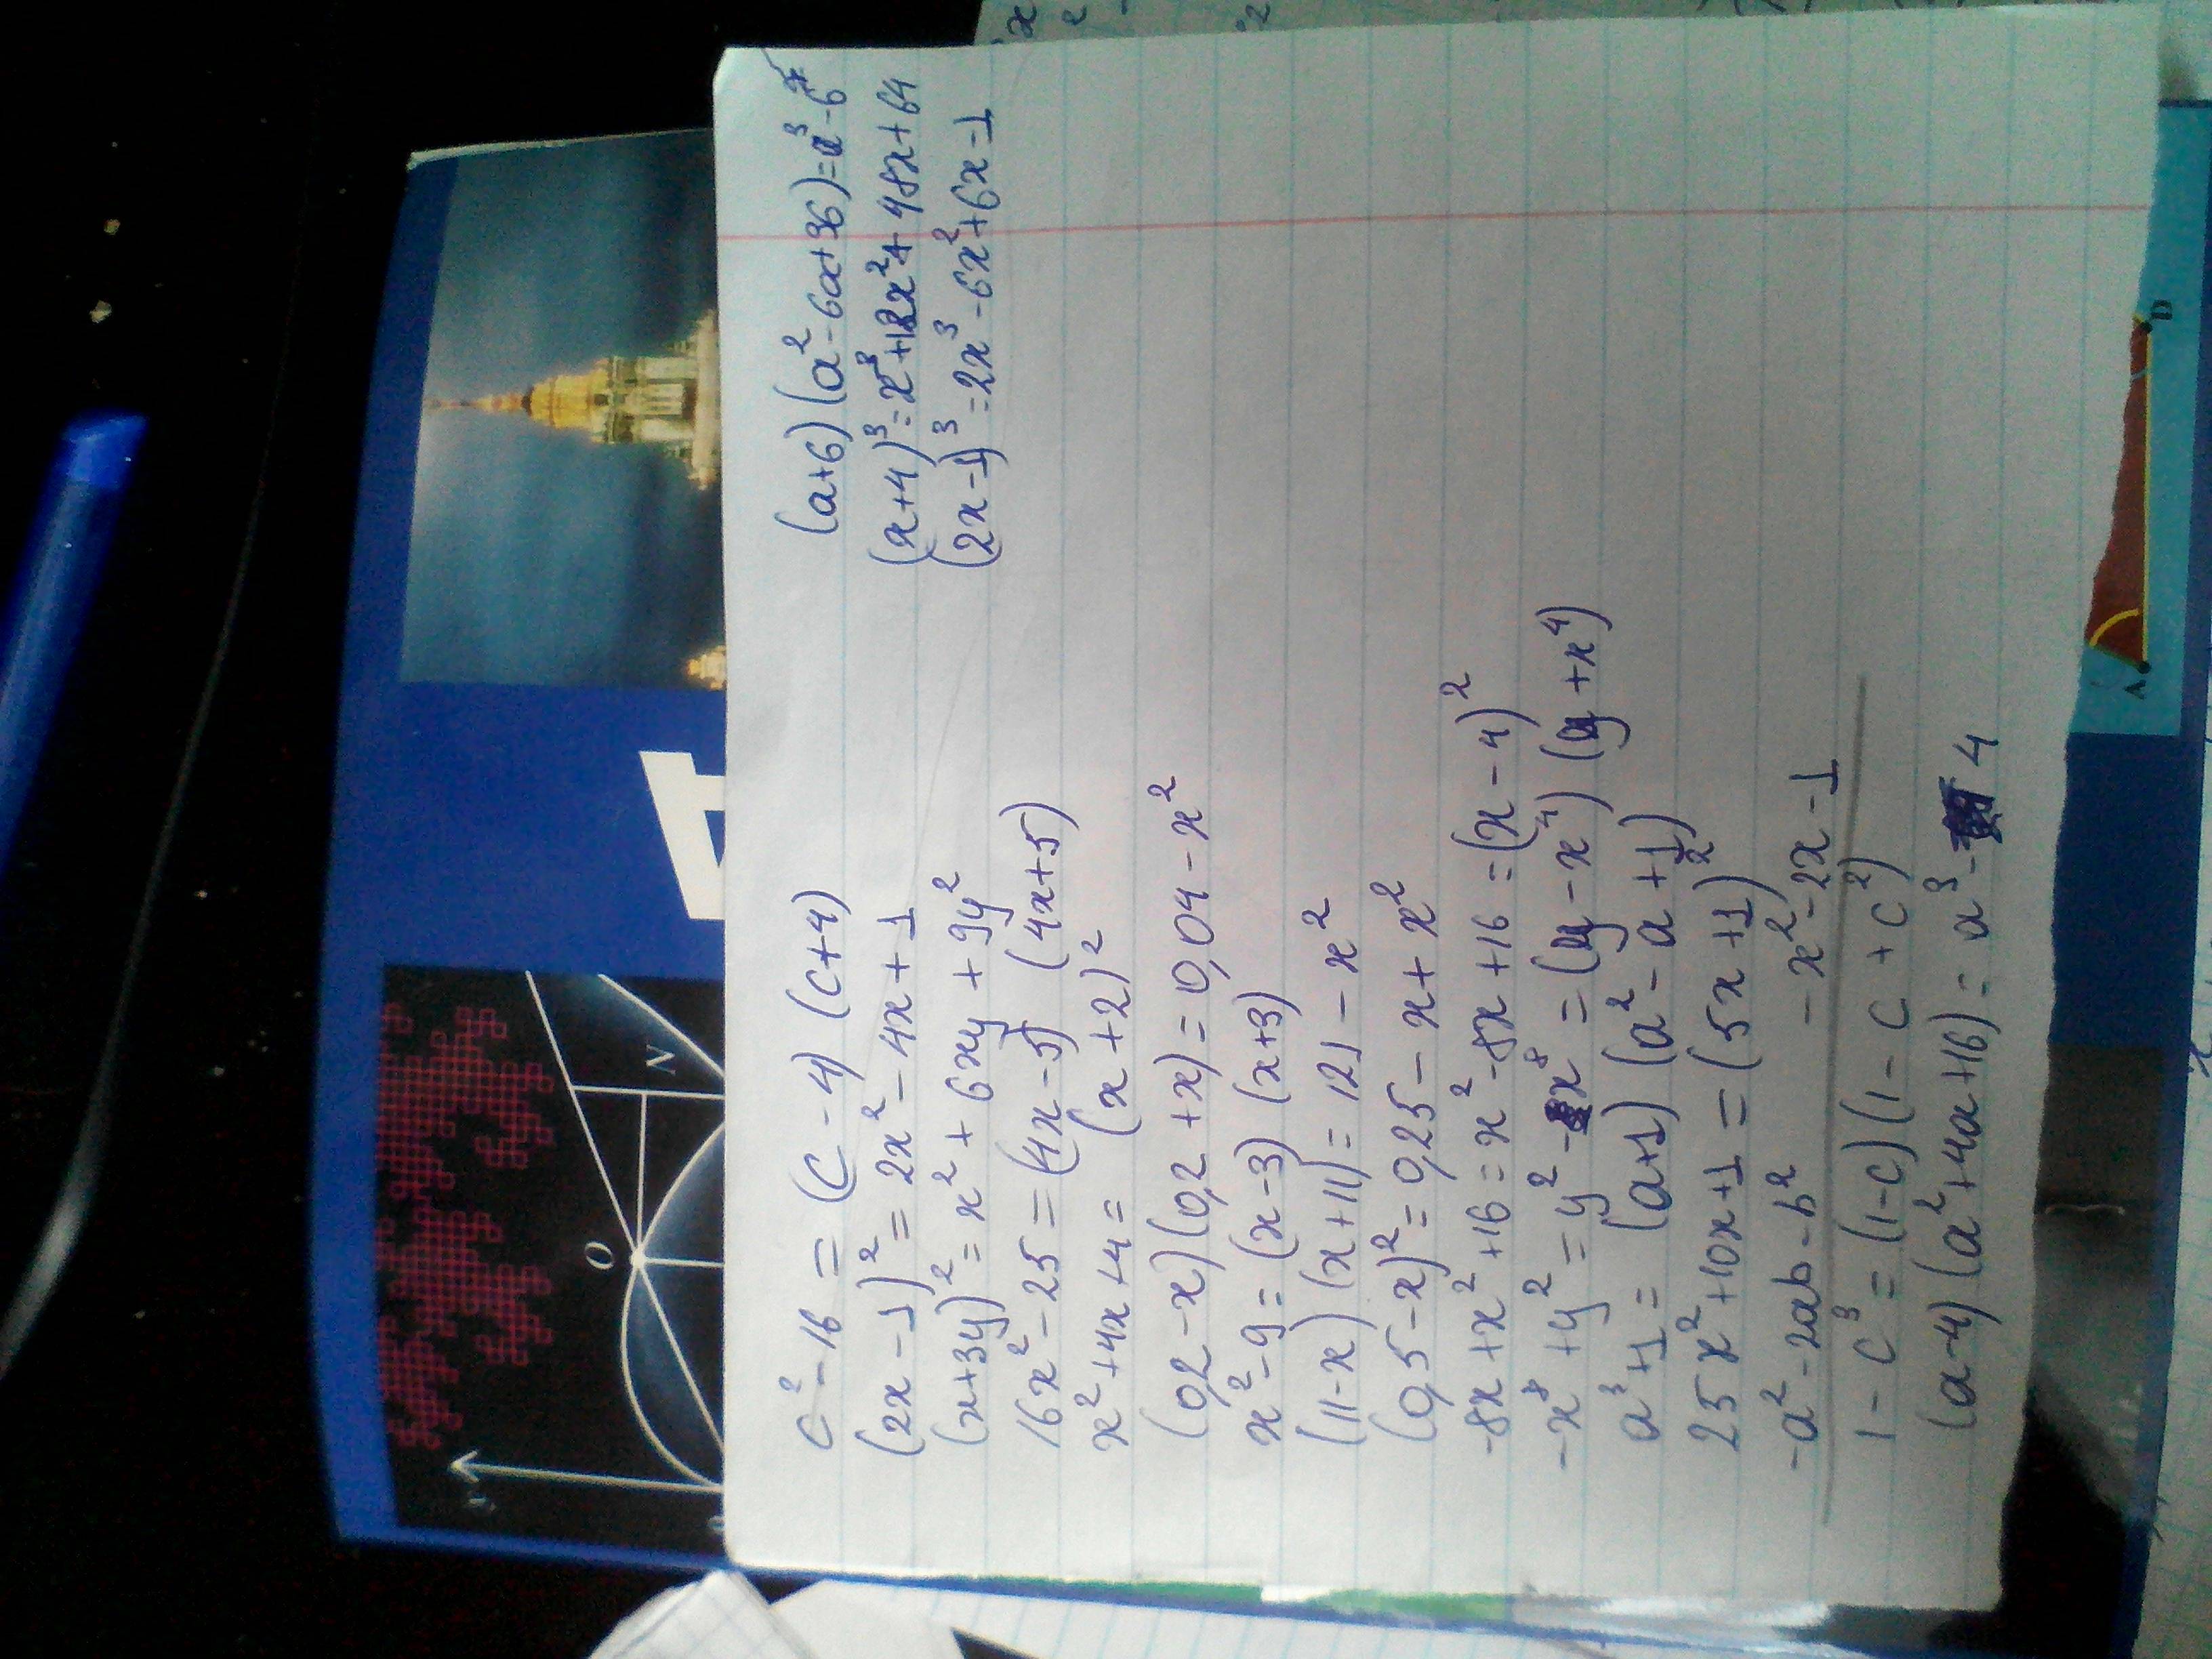 c² - 16 = (c - 4) (c+4)
(2x - 1)² = 2x² - 4x + 1
(x+3y)² = x² + 6xy + 9y²
16x² - 25 = (4x - 5) (4x+5)
x² + 4x + 4 = (x + 2)²
(0,2 - x) (0,2 + x) = 0,04 - x²
x² - 9 = (x - 3) (x+3)
(11 - x) (x + 11) = 121 - x²
(0,5 - x)² = 0,25 - x + x²
-8x + x² + 16 = x² - 8x + 16 = (x - 4)²
-x⁸ + y² = y² - x⁸ = (y - x⁴) (y + x⁴)
a³ + 1 = (a+1) (a² - a + 1)
25x² + 10x + 1 = (5x + 1)²
-a² - 2ab - b² - x² - 2x - 1
1 - c³ = (1 - c) (1 - c + c²)
(a - 4) (a² + 4a + 16) = a³ - 4
(a+6) (a² - 6a + 36) = a³ - 6
(x+4)³ = x³ + 12x² + 48x + 64
(2x - 1)³ = 2x³ - 6x² + 6x - 1
O
N
A
D